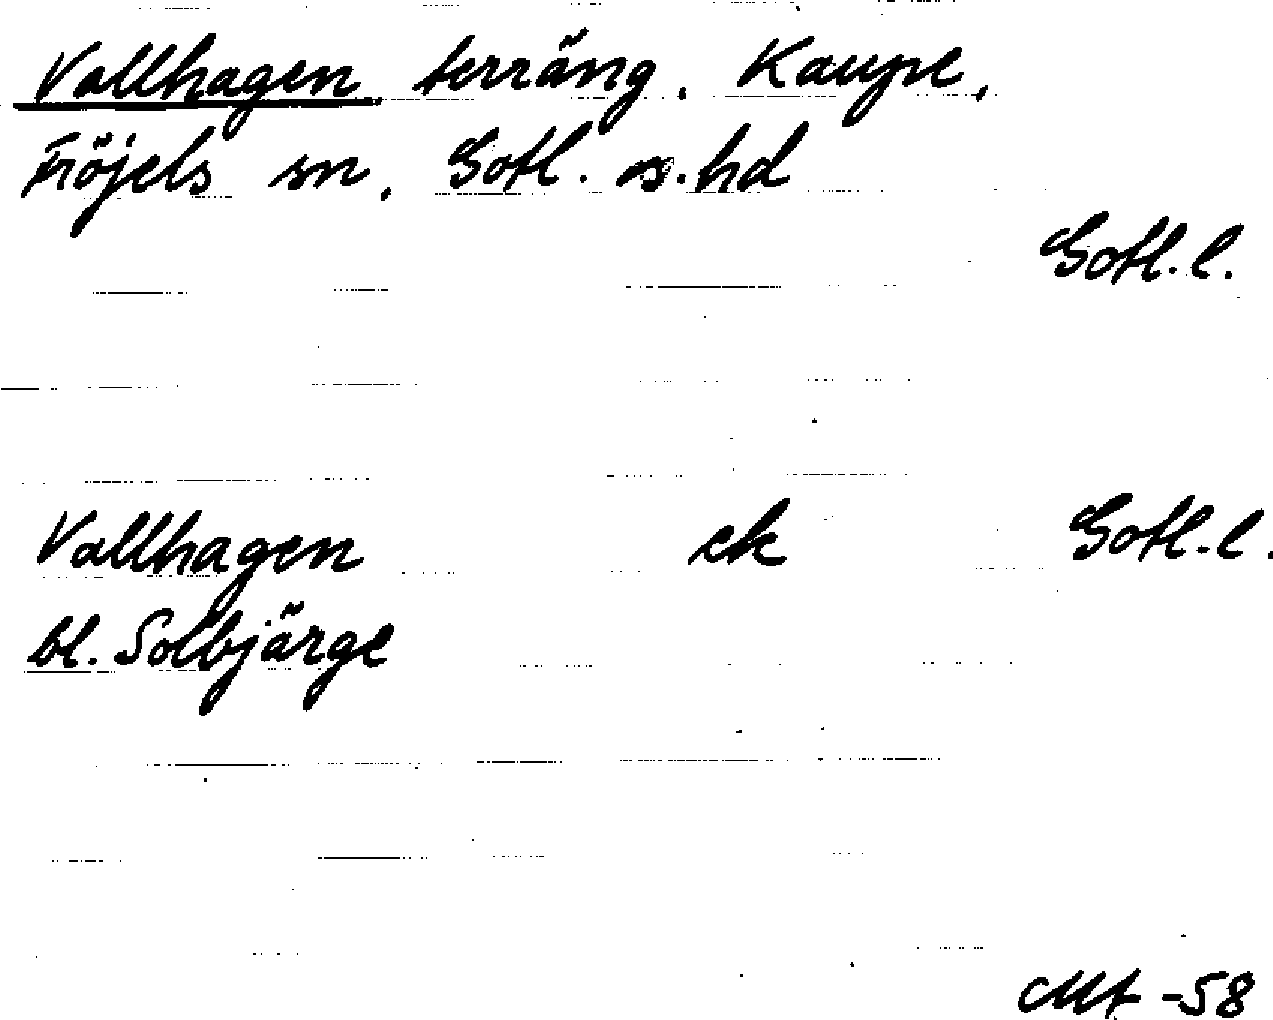 Vallhagen, terräng, Kaupe,
Fröjels sn, Gotl. s.hd
Gotl.l.
Vallhagen ek Gotl.l.
bl. Solbjärge
Mt -58